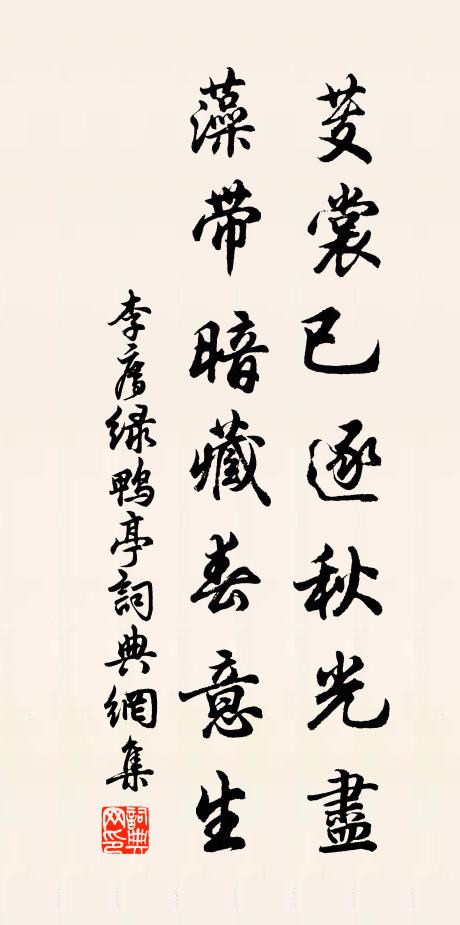 芰裳已逐秋光盡
藻帶暗藏春意生
李廌綠鴨亭詞典網集
詞典网印